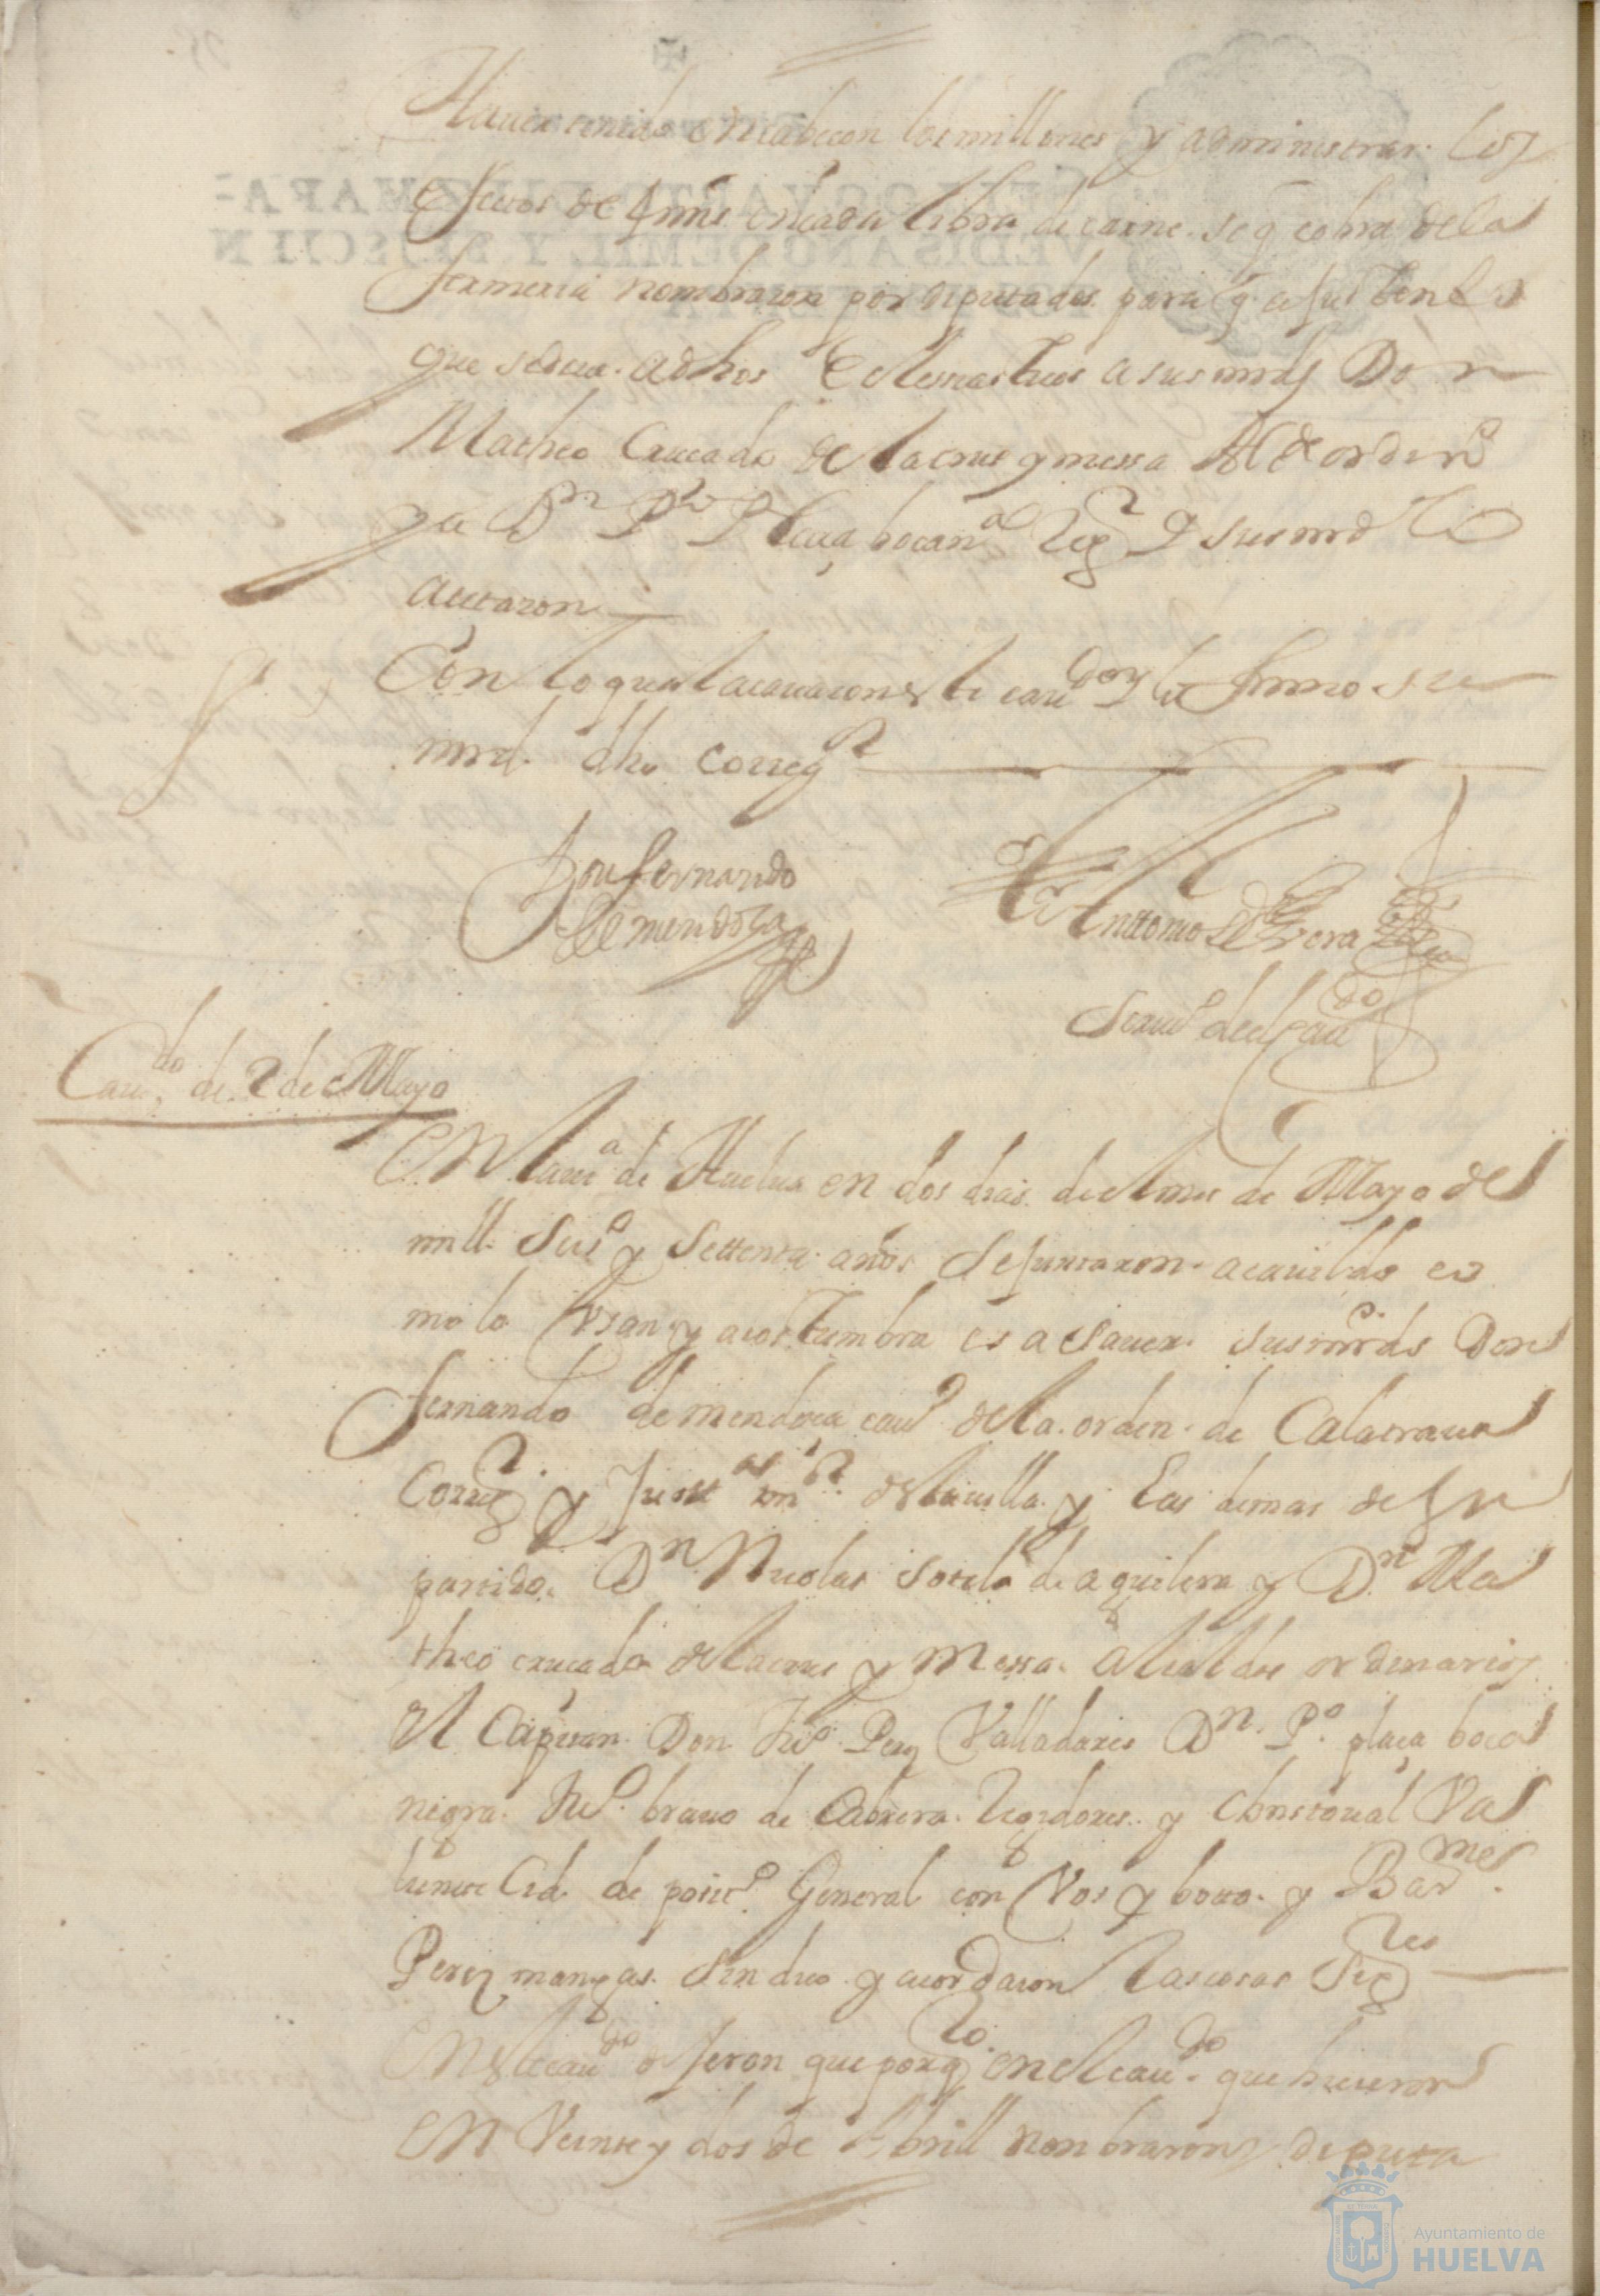 Hauer tenido en cabeçon los millones y administrar los
efectos de 4 mrs en cada libra de carne. se q cobra de la
fermeria nombraron por diputados para q ajusten lo
que se deua. a dhos Eclesiasticos a sus mrds Don
Matheo Cruçado de la crus y messa Alde ordinro
y a Dn Po Plaça bocana regr y sus mrds lo
autaron
Con lo qual acauaron este caudo y lo firmo su
mrd. dho corregr
Don fernando
de mendoça
Antonio de Vera
Scriuo del caudo
Caudo de 2 de Mayo
EN la uia de Huelua en dos dias del mes de Mayo de
mill Seiso y Settenta años Se juntaron a cauildo co
mo lo Vsan y acostumbra es a Sauer. sus mrds Don
fernando de mendoça cauo de la orden de Calatraua
Corregr y Justa mr de la uilla y las demas de su
partido. Dn Nicolas sotelo de aguilera y Dn Ma
theo cruçado de la crus y Messa. alcaldes ordinarios
el Capitan Don Juo Perez Valladares Dn Po plaça boca
negra. Juo brauo de Cabrera. Regidores y Christoual Va
liente Cid. de positro General con Vos y botto. y Barme
Perez mangas. Sindico y acordaron las cosas Sigtes
EN este caudo dijeron que por qto en el caudo que hicieron
EN Veinte y dos de Abrill nonbraron diputa
Ayuntamiento de
HUELVA